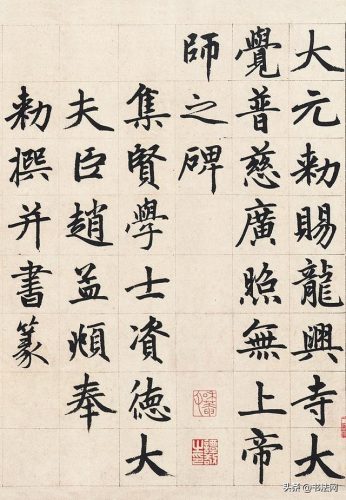 大元勑賜龍興寺大
覺普慈廣照無上帝
師之碑
集賢學士資德大
夫臣趙孟頫奉
勑撰并書篆
头条 @书法网